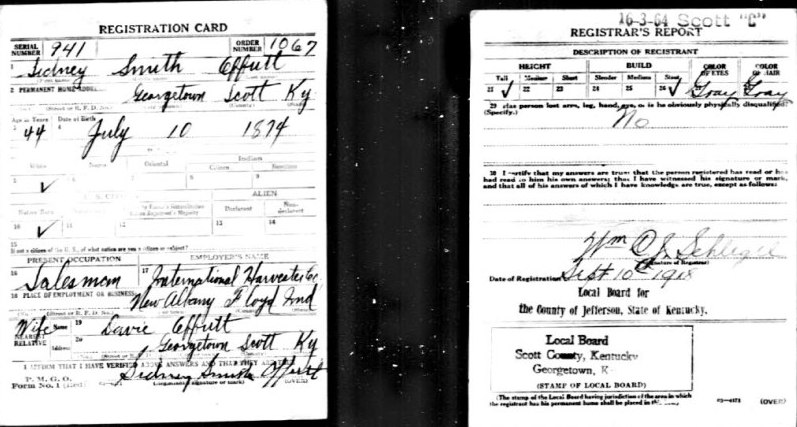 REGISTRATION CARD
SERIAL NUMBER 941 ORDER NUMBER 1067
1 Sidney Smith Offutt
2 PERMANENT HOME ADDRESS
Georgetown Scott Ky
Age in Years Date of Birth
3 44 4 July 10 1874
White Negro Oriental Indian
Citizen
5 ✓ 6 7 8 9
U. S. CITIZEN ALIEN
Native Born Declarant Non-declarant
10 ✓ 11 12 13 14
15
If not a citizen of the U. S., of what nation are you a citizen or subject?
PRESENT OCCUPATION EMPLOYER'S NAME
16 Salesman 17 International Harvester Co
18 PLACE OF EMPLOYMENT OR BUSINESS
New Albany Floyd Ind
Wife Name 19 Davie Offutt
NEAREST RELATIVE Address 20 Georgetown Scott Ky
I AFFIRM THAT I HAVE VERIFIED ABOVE ANSWERS AND THAT THEY ARE
P. M. G. O.
Form No. 1 (Red) Sidney Smith Offutt
(Registrant's signature or mark) (OVER)
16-3-64 Scott "C"
REGISTRAR'S REPORT
DESCRIPTION OF REGISTRANT
HEIGHT BUILD COLOR OF EYES COLOR OF HAIR
Tall Medium Short Slender Medium Stout
21 ✓ 22 23 24 25 26 ✓ 27 Gray Gray
29 Has person lost arm, leg, hand, eye, or is he obviously physically disqualified?
(Specify.) No
30 I certify that my answers are true; that the person registered has read or has
had read to him his own answers; that I have witnessed his signature or mark,
and that all of his answers of which I have knowledge are true, except as follows:
Wm O J Schlegel
(Signature of Registrar)
Date of Registration Sept 10 1918
Local Board for
the County of Jefferson, State of Kentucky.
Local Board
Scott County, Kentucky
Georgetown, K
(STAMP OF LOCAL BOARD)
(The stamp of the Local Board having jurisdiction of the area in which
the registrant has his permanent home shall be placed in this box.)
(OVER)